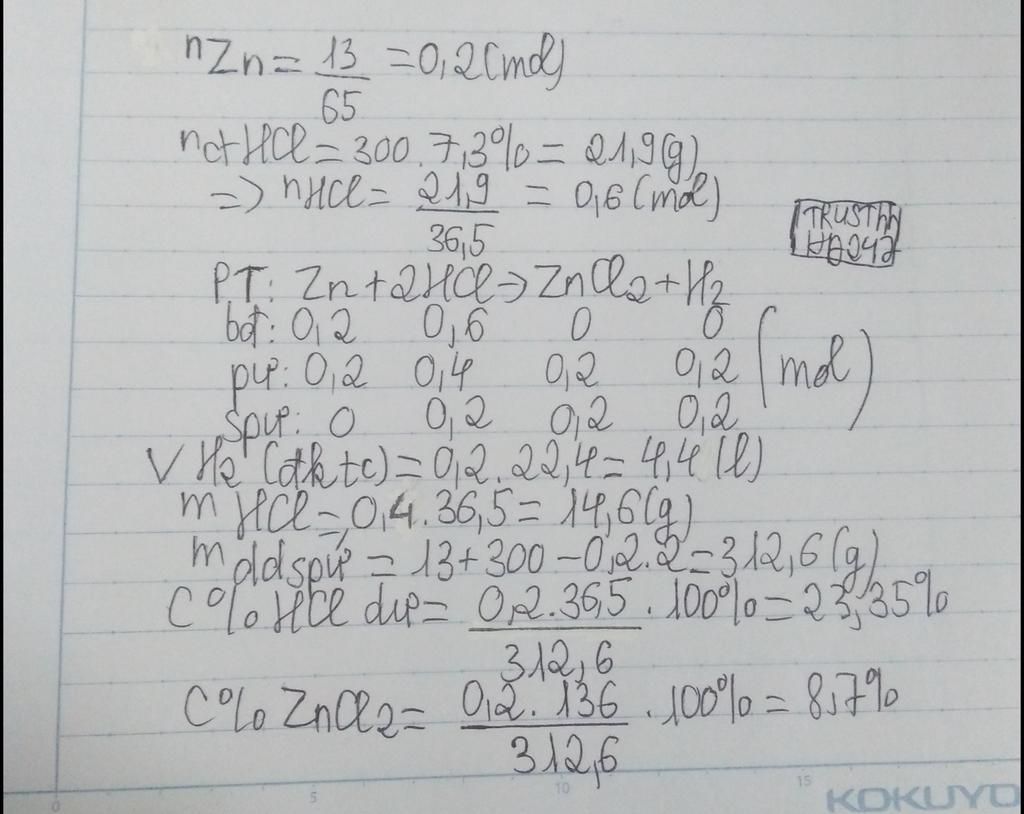 nZn = 13/65 = 0,2(mol)
mctHCl = 300.7,3% = 21,9(g)
=> nHCl = 21,9/36,5 = 0,6(mol)
TRUSThh
PT: Zn + 2HCl -> ZnCl2 + H2
bđ: 0,2 0,6 0 0
pư: 0,2 0,4 0,2 0,2 (mol)
spư: 0 0,2 0,2 0,2
V H2 (đktc) = 0,2.22,4 = 4,4(l)
m HCl = 0,4.36,5 = 14,6(g)
mddspư = 13+300-0,2.2 = 312,6(g)
C% HCl dư = 0,2.36,5/312,6 . 100% = 23,35%
C% ZnCl2 = 0,2.136/312,6 . 100% = 8,7%
0 5 10 15
KOKUYO